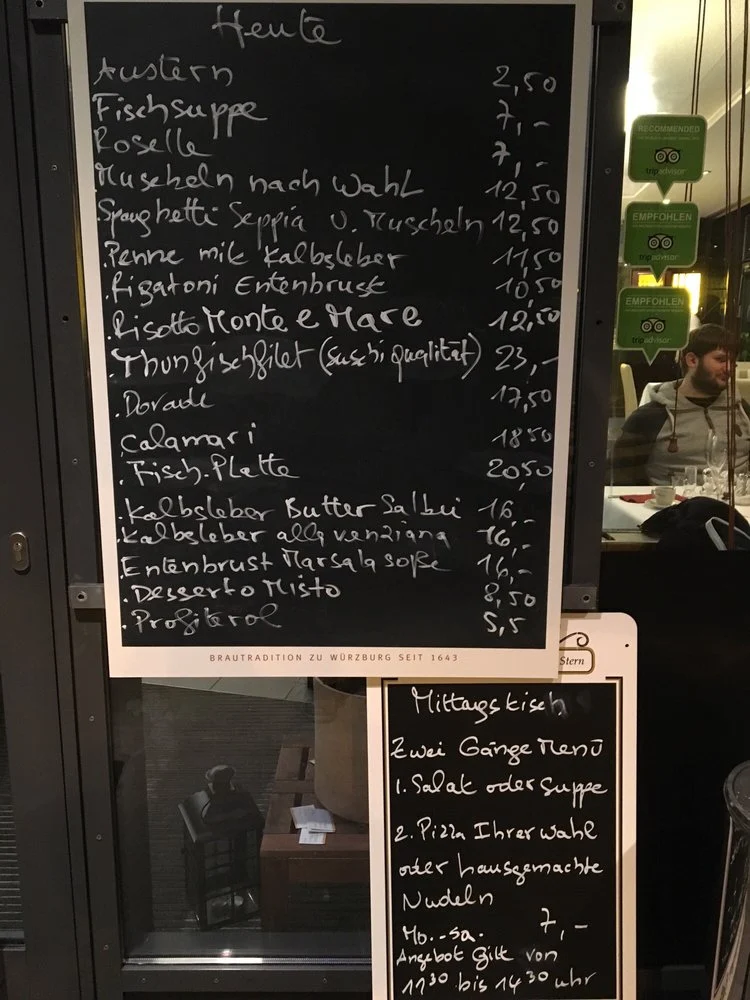 Heute
Austern 2,50
Fischsuppe 7,-
Roselle 7,-
Muscheln nach Wahl 12,50
Spaghetti Seppia u. Muscheln 12,50
.Penne mit Kalbsleber 11,50
.Rigatoni Entenbrust 10,50
.Risotto Monte e Mare 12,50
.Thunfischfilet (suschi qualität) 23,-
.Dorade 17,50
calamari 18 50
.Fisch.Platte 20,50
.Kalbsleber Butter Salbei 16,-
.Kalbsleber alla venziana 16,-
.Entenbrust Marsala soße 16,-
.Desserto Misto 8,50
.Profiterol 5,5
BRAUTRADITION ZU WÜRZBURG SEIT 1643
RECOMMENDED
tripadvisor
EMPFOHLEN
tripadvisor
EMPFOHLEN
tripadvisor
Stern
Mittagstisch
Zwei Gänge Menü
1. Salat oder Suppe
2. Pizza Ihrer wahl
oder hausgemachte
Nudeln
Mo.-Sa. 7,-
Angebot gilt von
11 30 bis 14 30 uhr